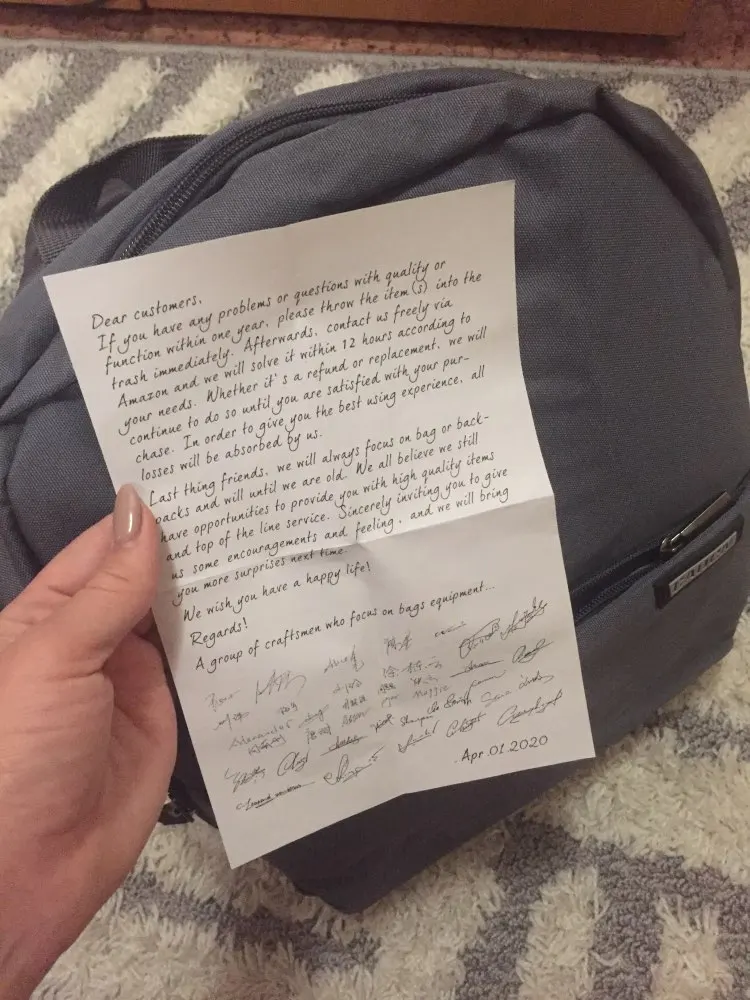 Dear customers,
If you have any problems or questions with quality or
function within one year, please throw the item(s) into the
trash immediately. Afterwards, contact us freely via
Amazon and we will solve it within 12 hours according to
your needs. Whether it's a refund or replacement, we will
continue to do so until you are satisfied with your pur-
chase. In order to give you the best using experience, all
losses will be absorbed by us.
Last thing friends, we will always focus on bag or back-
packs and will until we are old. We all believe we still
have opportunities to provide you with high quality items
and top of the line service. Sincerely inviting you to give
us some encouragements and feeling, and we will bring
you more surprises next time.
We wish you have a happy life!
Regards!
A group of craftsmen who focus on bags equipment...
Alexander
Maggie
Apr.01.2020